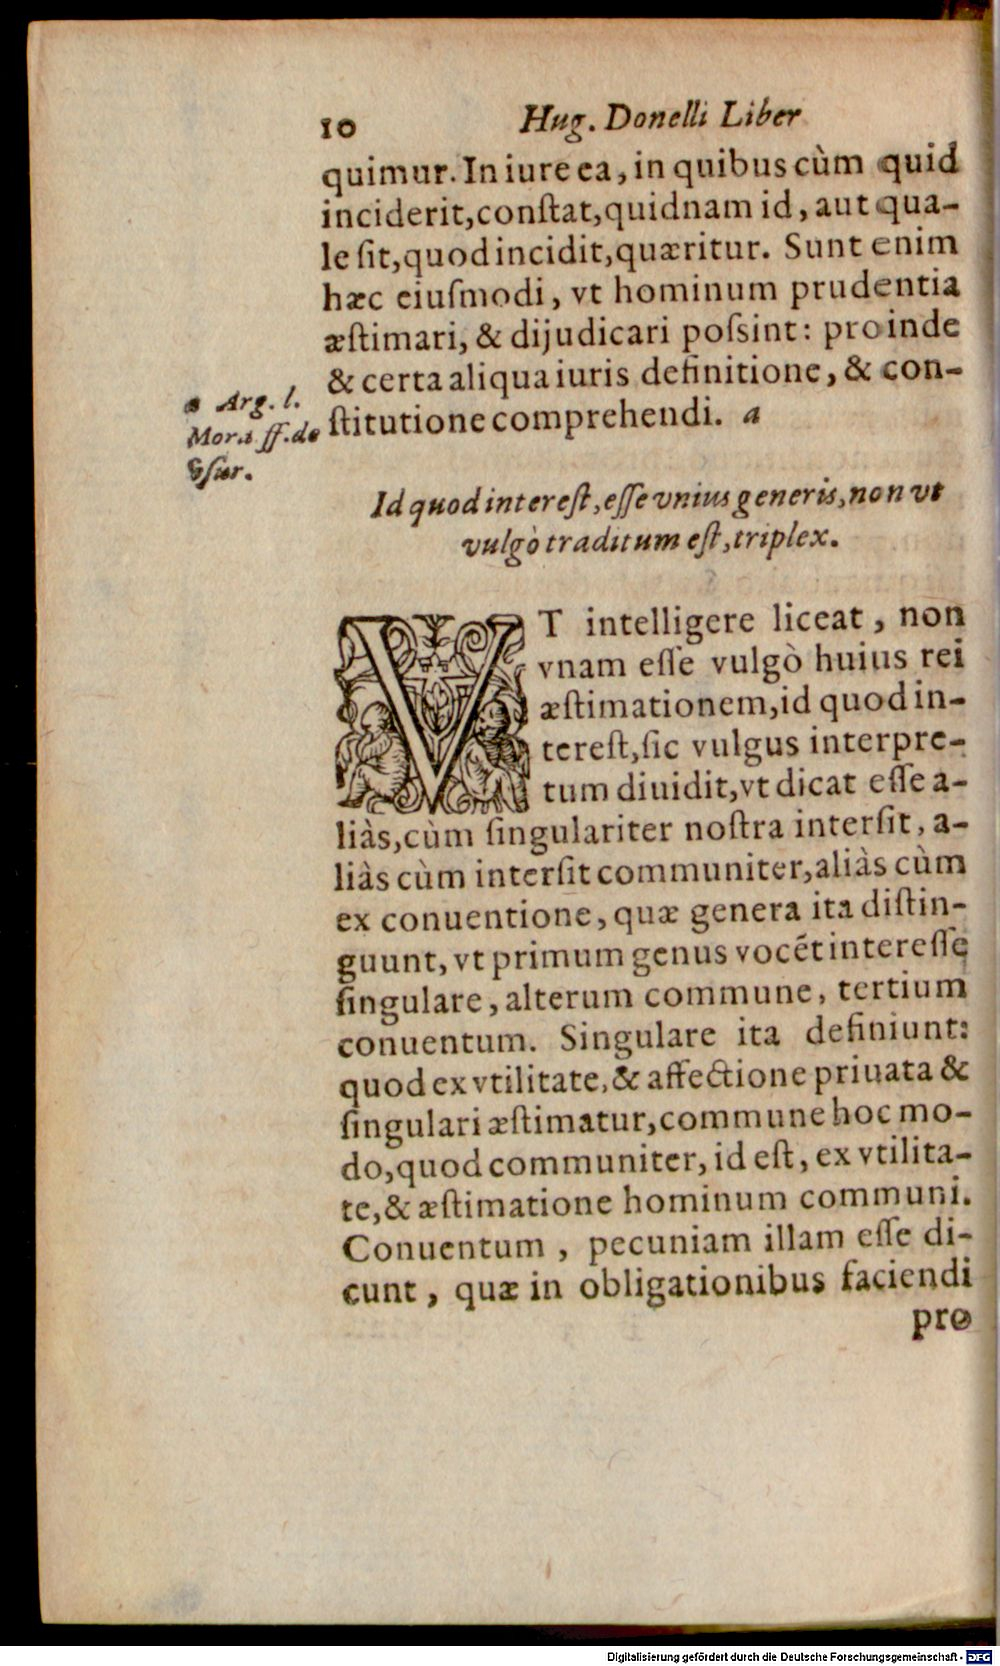 10 Hug. Donelli Liber
quimur. In iure ea, in quibus cùm quid
inciderit, conſtat, quidnam id, aut qua-
le ſit, quod incidit, quæritur. Sunt enim
hæc eiuſmodi, vt hominum prudentia
æſtimari, & dijudicari poſsint: proinde
& certa aliqua iuris definitione, & con-
ſtitutione comprehendi. a
a Arg. l.
Mora ff. de
vſur.
Id quod intereſt, eſſe vnius generis, non vt
vulgò traditum eſt, triplex.
VT intelligere liceat, non
vnam eſſe vulgò huius rei
æſtimationem, id quod in-
tereſt, ſic vulgus interpre-
tum diuidit, vt dicat eſſe a-
liàs, cùm ſingulariter noſtra interſit, a-
liàs cùm interſit communiter, aliàs cùm
ex conuentione, quæ genera ita diſtin-
guunt, vt primum genus vocẽt intereſſe
ſingulare, alterum commune, tertium
conuentum. Singulare ita definiunt:
quod ex vtilitate, & affectione priuata &
ſingulari æſtimatur, commune hoc mo-
do, quod communiter, id eſt, ex vtilita-
te, & æſtimatione hominum communi.
Conuentum, pecuniam illam eſſe di-
cunt, quæ in obligationibus faciendi
pro
Digitalisierung gefördert durch die Deutsche Forschungsgemeinschaft - DFG